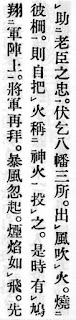 助㆑老臣之忠。伏乞八幡三所。出㆑風吹㆑火。燒㆓
彼柵㆒。則自把㆑火稱㆓神火㆒投㆑之。是時有㆑鳩。
翔㆓軍陣上㆒。將軍再拜。暴風忽起。煙焰如㆑飛。先